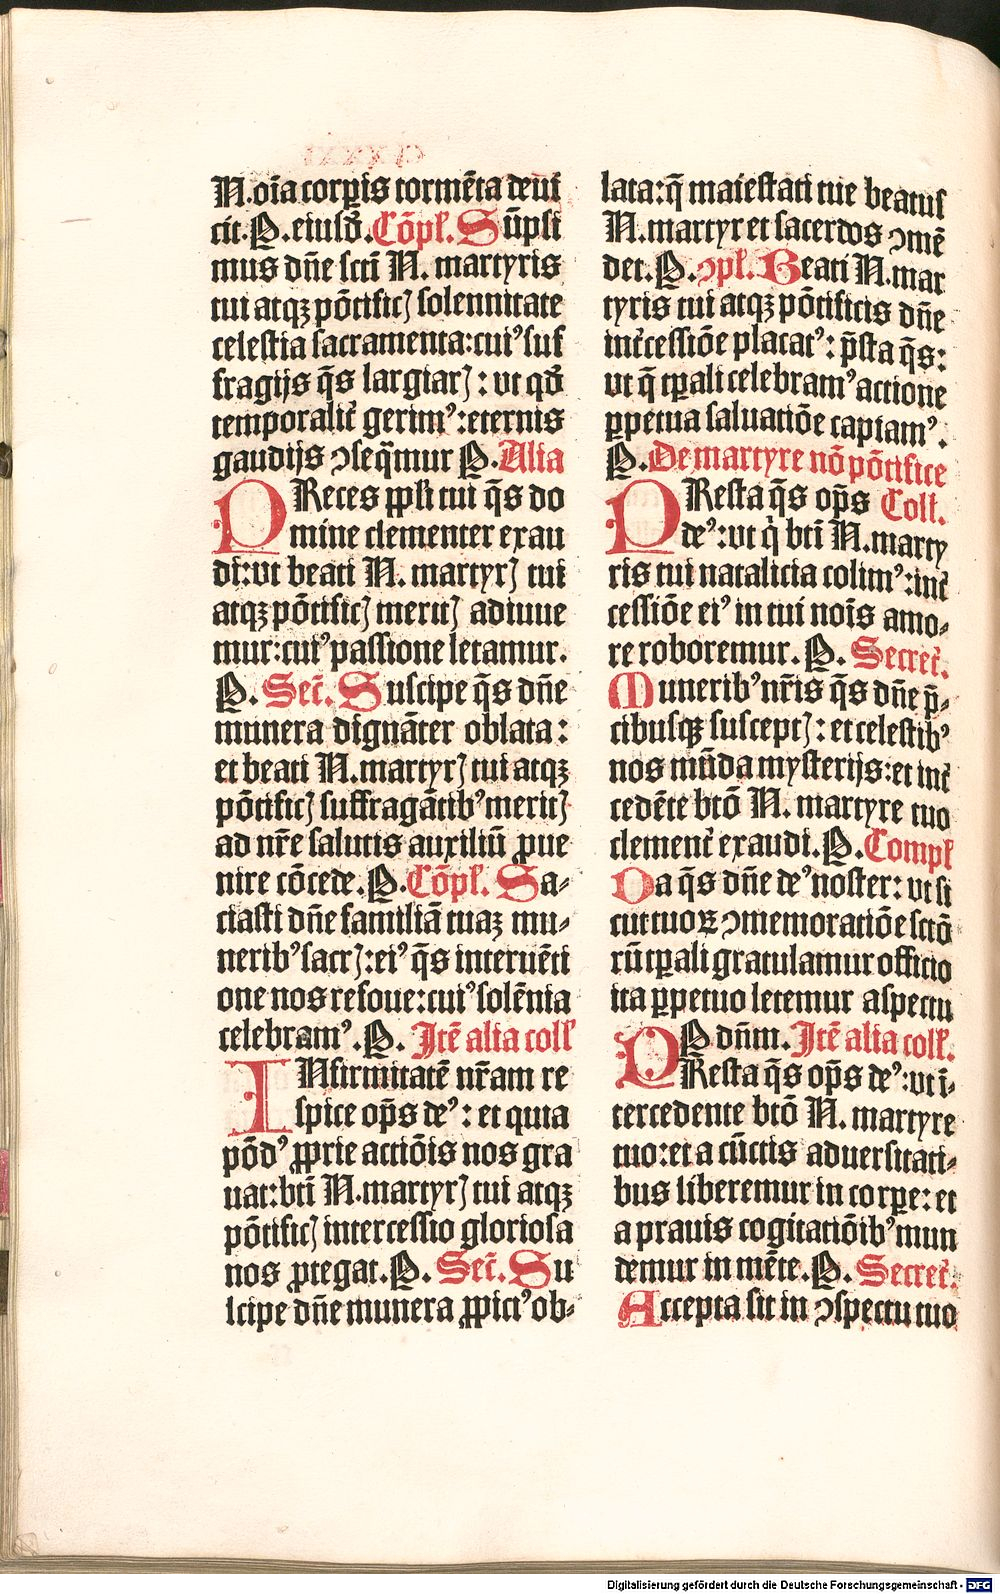 N. oīa corꝑis tormēta deui
cit. P. eiusdē. Cōpl'. Sūpsi
mus dn̄e scti N. martyris
tui atqꝫ pōtificꝭ solennitate
celestia sacramenta: cuiꝰ suf
fragijs q̄s largiarꝭ: vt qd̄
temporalit̄ gerimꝰ: eternis
gaudijs ꝯseq̄mur P. Alia
PReces ppl'i tui q̄s do
mine clementer exau
di: vt beati N. martyrꝭ tui
atqꝫ pōtificꝭ meritꝭ adiuue
mur: cuiꝰ passione letamur.
P. Sec̄. Suscipe q̄s dn̄e
munera dignāter oblata:
et beati N. martyrꝭ tui atqꝫ
pōtificꝭ suffragātibꝰ meritꝭ
ad nr̄e salutis auxiliū ꝓue
nire cōcede. P. Cōpl'. Sa⸗
ciasti dn̄e familiā tuaꝫ mu⸗
neribꝰ sacrꝭ: eiꝰ q̄s interuēti
one nos refoue: cuiꝰ solēnia
celebramꝰ. P. Itē alia coll'
INfirmitatē nr̄am re
spice op̄s deꝰ: et quia
pōdꝰ ꝓprie actiōis nos gra
uat: bt̄i N. martyrꝭ tui atqꝫ
pōtificꝭ intercessio gloriosa
nos ꝓtegat. P. Sec̄. Su
scipe dn̄e munera ꝓpiciꝰ ob⸗
lata: q̄ maiestati tue beatus
N. martyr et sacerdos ꝯmē
det. P. ꝯpl'. Beati N. mar
tyris tui atqꝫ pōtificis dn̄e
int̄cessiōe placatꝰ: p̄sta q̄s:
vt q̄ tꝑali celebramꝰ actione
ꝑpetua saluatiōe capiamꝰ.
P. De martyre nō pōtifice
PResta q̄s op̄s Coll.
deꝰ: vt qͥ bt̄i N. marty
ris tui natalicia colimꝰ: int̄
cessiōe eiꝰ in tui nōis amo⸗
re roboremur. P. Secret̄.
Muneribꝰ nr̄is q̄s dn̄e p̄⸗
cibusqꝫ susceptꝭ: et celestibꝰ
nos mūda mysterijs: et int̄
cedēte btō N. martyre tuo
clement̄ exaudi. P. Compl'
Da q̄s dn̄e deꝰ noster: vt si
cut tuoꝝ ꝯmemoratiōe sctō
rū tꝑali gratulamur officio
ita ꝑpetuo letemur aspectu
P dn̄m. Itē alia coll'.
PResta q̄s op̄s deꝰ: vt ī⸗
tercedente btō N. martyre
tuo: et a cūctis aduersitati⸗
bus liberemur in corꝑe: et
a prauis cogitatiōibꝰ mun
demur in mēte. P. Secret̄.
Accepta sit in ꝯspectu tuo
Digitalisierung gefördert durch die Deutsche Forschungsgemeinschaft - DFG